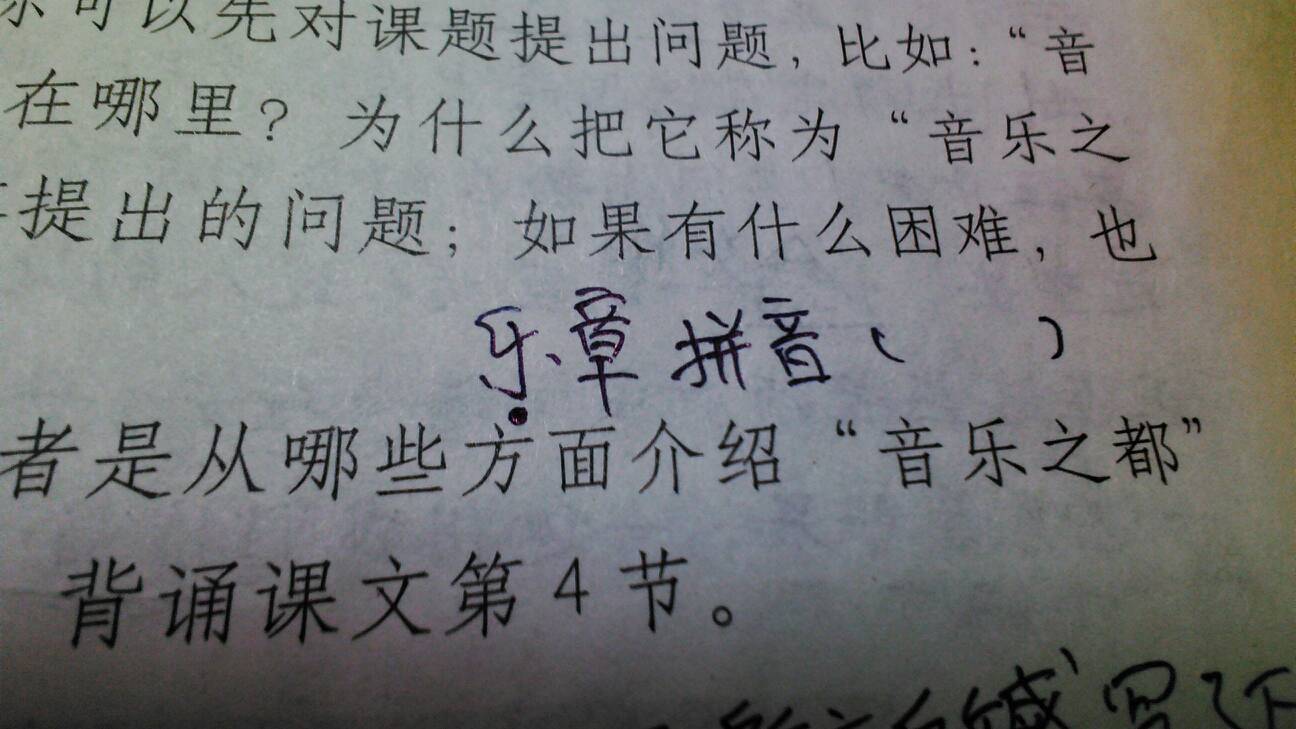 你可以先对课题提出问题，比如：“音
在哪里？为什么把它称为“音乐之
提出的问题；如果有什么困难，也
乐章 拼音（ ）
者是从哪些方面介绍“音乐之都”
背诵课文第4节。
写了下